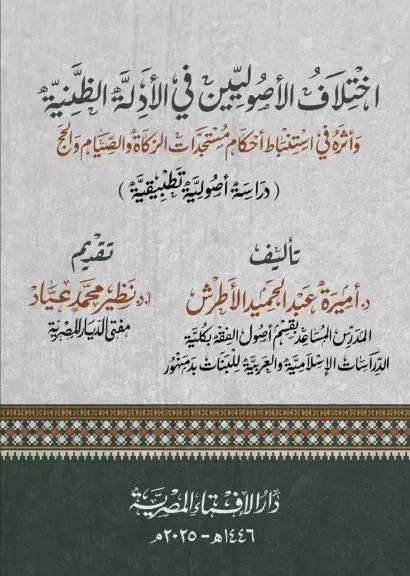 اختلاف الأصوليين في الأدلة الظنية
وأثره في استنباط أحكام مستجدات الزكاة والصيام والحج
(دراسة أصولية تطبيقية)
تأليف
د. أميرة عبد الحميد الأطرش
المدرس المساعد بقسم أصول الفقه بكلية
الدراسات الإسلامية والعربية للبنات بدمنهور
تقديم
أ.د. نظير محمد عياد
مفتي الديار المصرية
دار الإفتاء المصرية
١٤٤٦هـ - ٢٠٢٥م